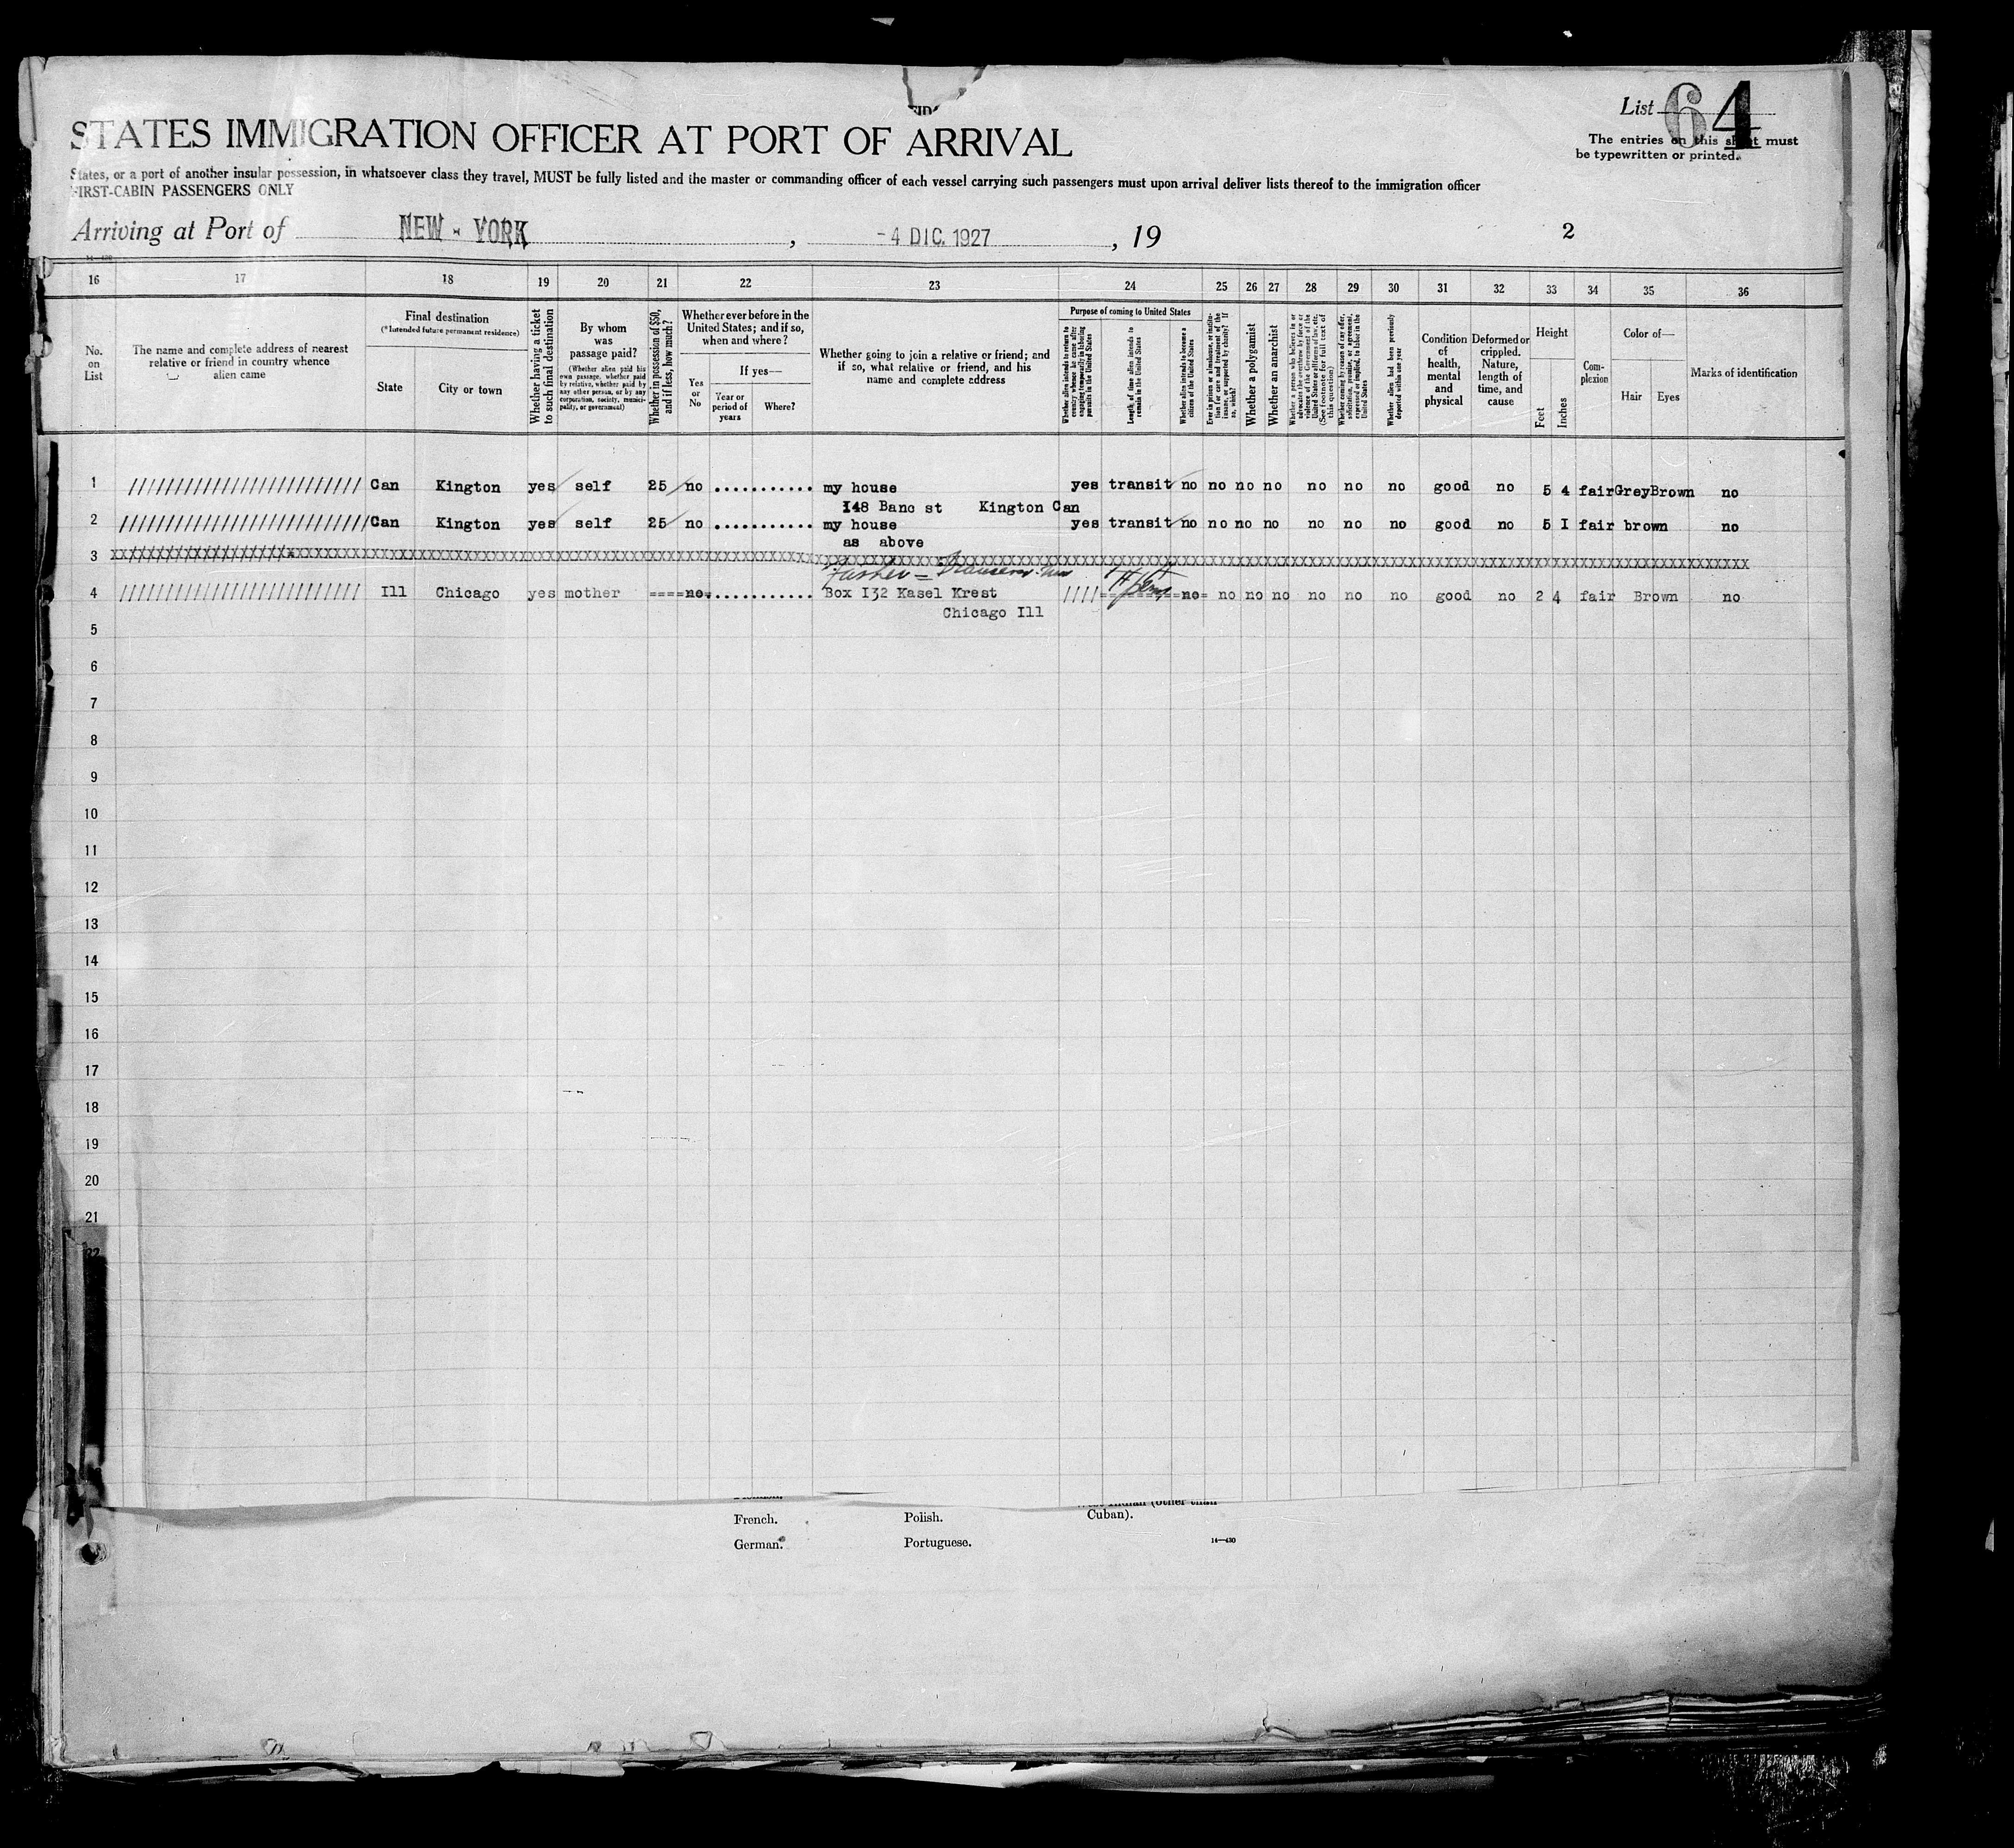 STATES IMMIGRATION OFFICER AT PORT OF ARRIVAL
List 64
The entries on this sheet must
be typewritten or printed.
States, or a port of another insular possession, in whatsoever class they travel, MUST be fully listed and the master or commanding officer of each vessel carrying such passengers must upon arrival deliver lists thereof to the immigration officer
FIRST-CABIN PASSENGERS ONLY
Arriving at Port of NEW - YORK, -4 DIC. 1927, 19 2
16 17 18 19 20 21 22 23 24 25 26 27 28 29 30 31 32 33 34 35 36
No. on List
The name and complete address of nearest relative or friend in country whence alien came
Final destination
(*Intended future permanent residence)
State
City or town
Whether having a ticket to such final destination
By whom was passage paid?
(Whether alien paid his own passage, whether paid by relative, whether paid by any other person, or by any corporation, society, municipality, or government)
Whether in possession of $50, and if less, how much?
Whether ever before in the United States; and if so, when and where?
Yes or No
If yes—
Year or period of years
Where?
Whether going to join a relative or friend; and if so, what relative or friend, and his name and complete address
Purpose of coming to United States
Whether alien intends to return to country whence he came after engaging temporarily in laboring pursuits in the United States
Length of time alien intends to remain in the United States
Whether alien intends to become a citizen of the United States
Ever in prison or almshouse, or institution for care and treatment of the insane, or supported by charity? If so, which?
Whether a polygamist
Whether an anarchist
Whether coming by reason of any offer, solicitation, promise, or agreement, expressed or implied, to labor in the United States
Whether alien had been previously deported within one year
Condition of health, mental and physical
Deformed or crippled. Nature, length of time, and cause
Height
Feet
Inches
Complexion
Color of—
Hair
Eyes
Marks of identification
1 //////////////////////// Can Kington yes self 25 no ........... my house yes transit no no no no no no no good no 5 4 fair Grey Brown no
I48 Banc st Kington Can
2 //////////////////////// Can Kington yes self 25 no ........... my house yes transit no no no no no no no good no 5 I fair brown no
as above
3
Father =
4 //////////////////////// Ill Chicago yes mother ==== no ............ Box I32 Kasel Krest //// no no no no no no no good no 2 4 fair Brown no
Chicago Ill
5
6
7
8
9
10
11
12
13
14
15
16
17
18
19
20
21
French. Polish. Cuban).
German. Portuguese. 14—430